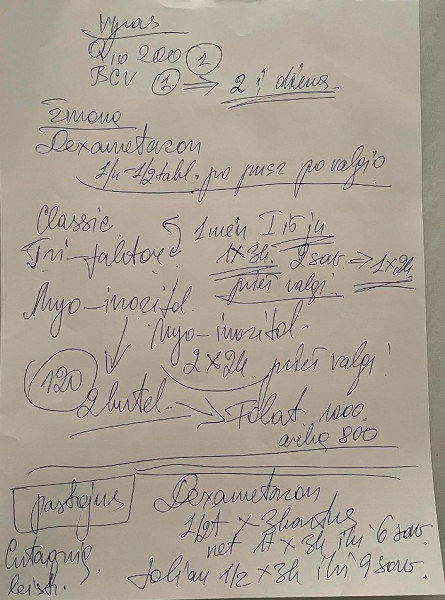 Vyras
Q10 200 1
BCV 1 ⇒ 2 į dieną
Žmona
Dexametazon
1/4-1/2 tabl. po pusr po valgio
Classic. 1 mėn
Tri-folatore 1x3k. 2 sav. ⇒ 1x2k
prieš valgį.
Myo-inozitol
Myo-inozitol.
2x2k. prieš valgį!
120
2 butel. Folat. 1000.
arba 800
pastojus Dexametazon
1/2t x 3kartus
net 1t x 3k iki 6 sav.
toliau 1/2 x 3k iki 9 sav.